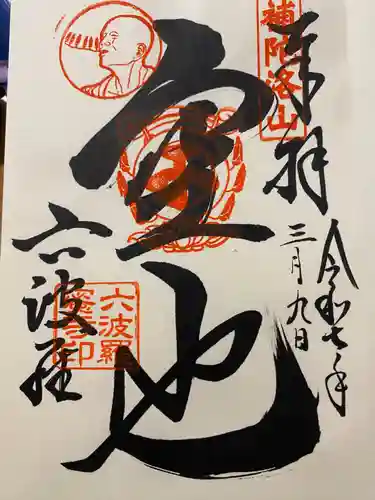 奉拝
補陀洛山
令和七年
三月九日
空也
六波羅
六波羅
蜜寺印